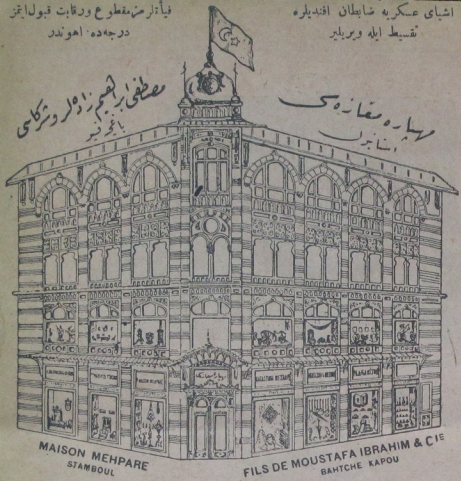 اشیای عسکریه ضابطان افندیلره
تقسیط ایله ویریلیر
فیأتلرمز مقطوع ورقابت قبول ایتمز
درجه‌ده اهوندر
مهپاره مغازه‌سی
استانبول
مصطفی ابراهیم زاده‌لر وشرکاسی
MAISON MEHPARE
STAMBOUL
FILS DE MOUSTAFA IBRAHIM & CIE
BAHTCHE KAPOU